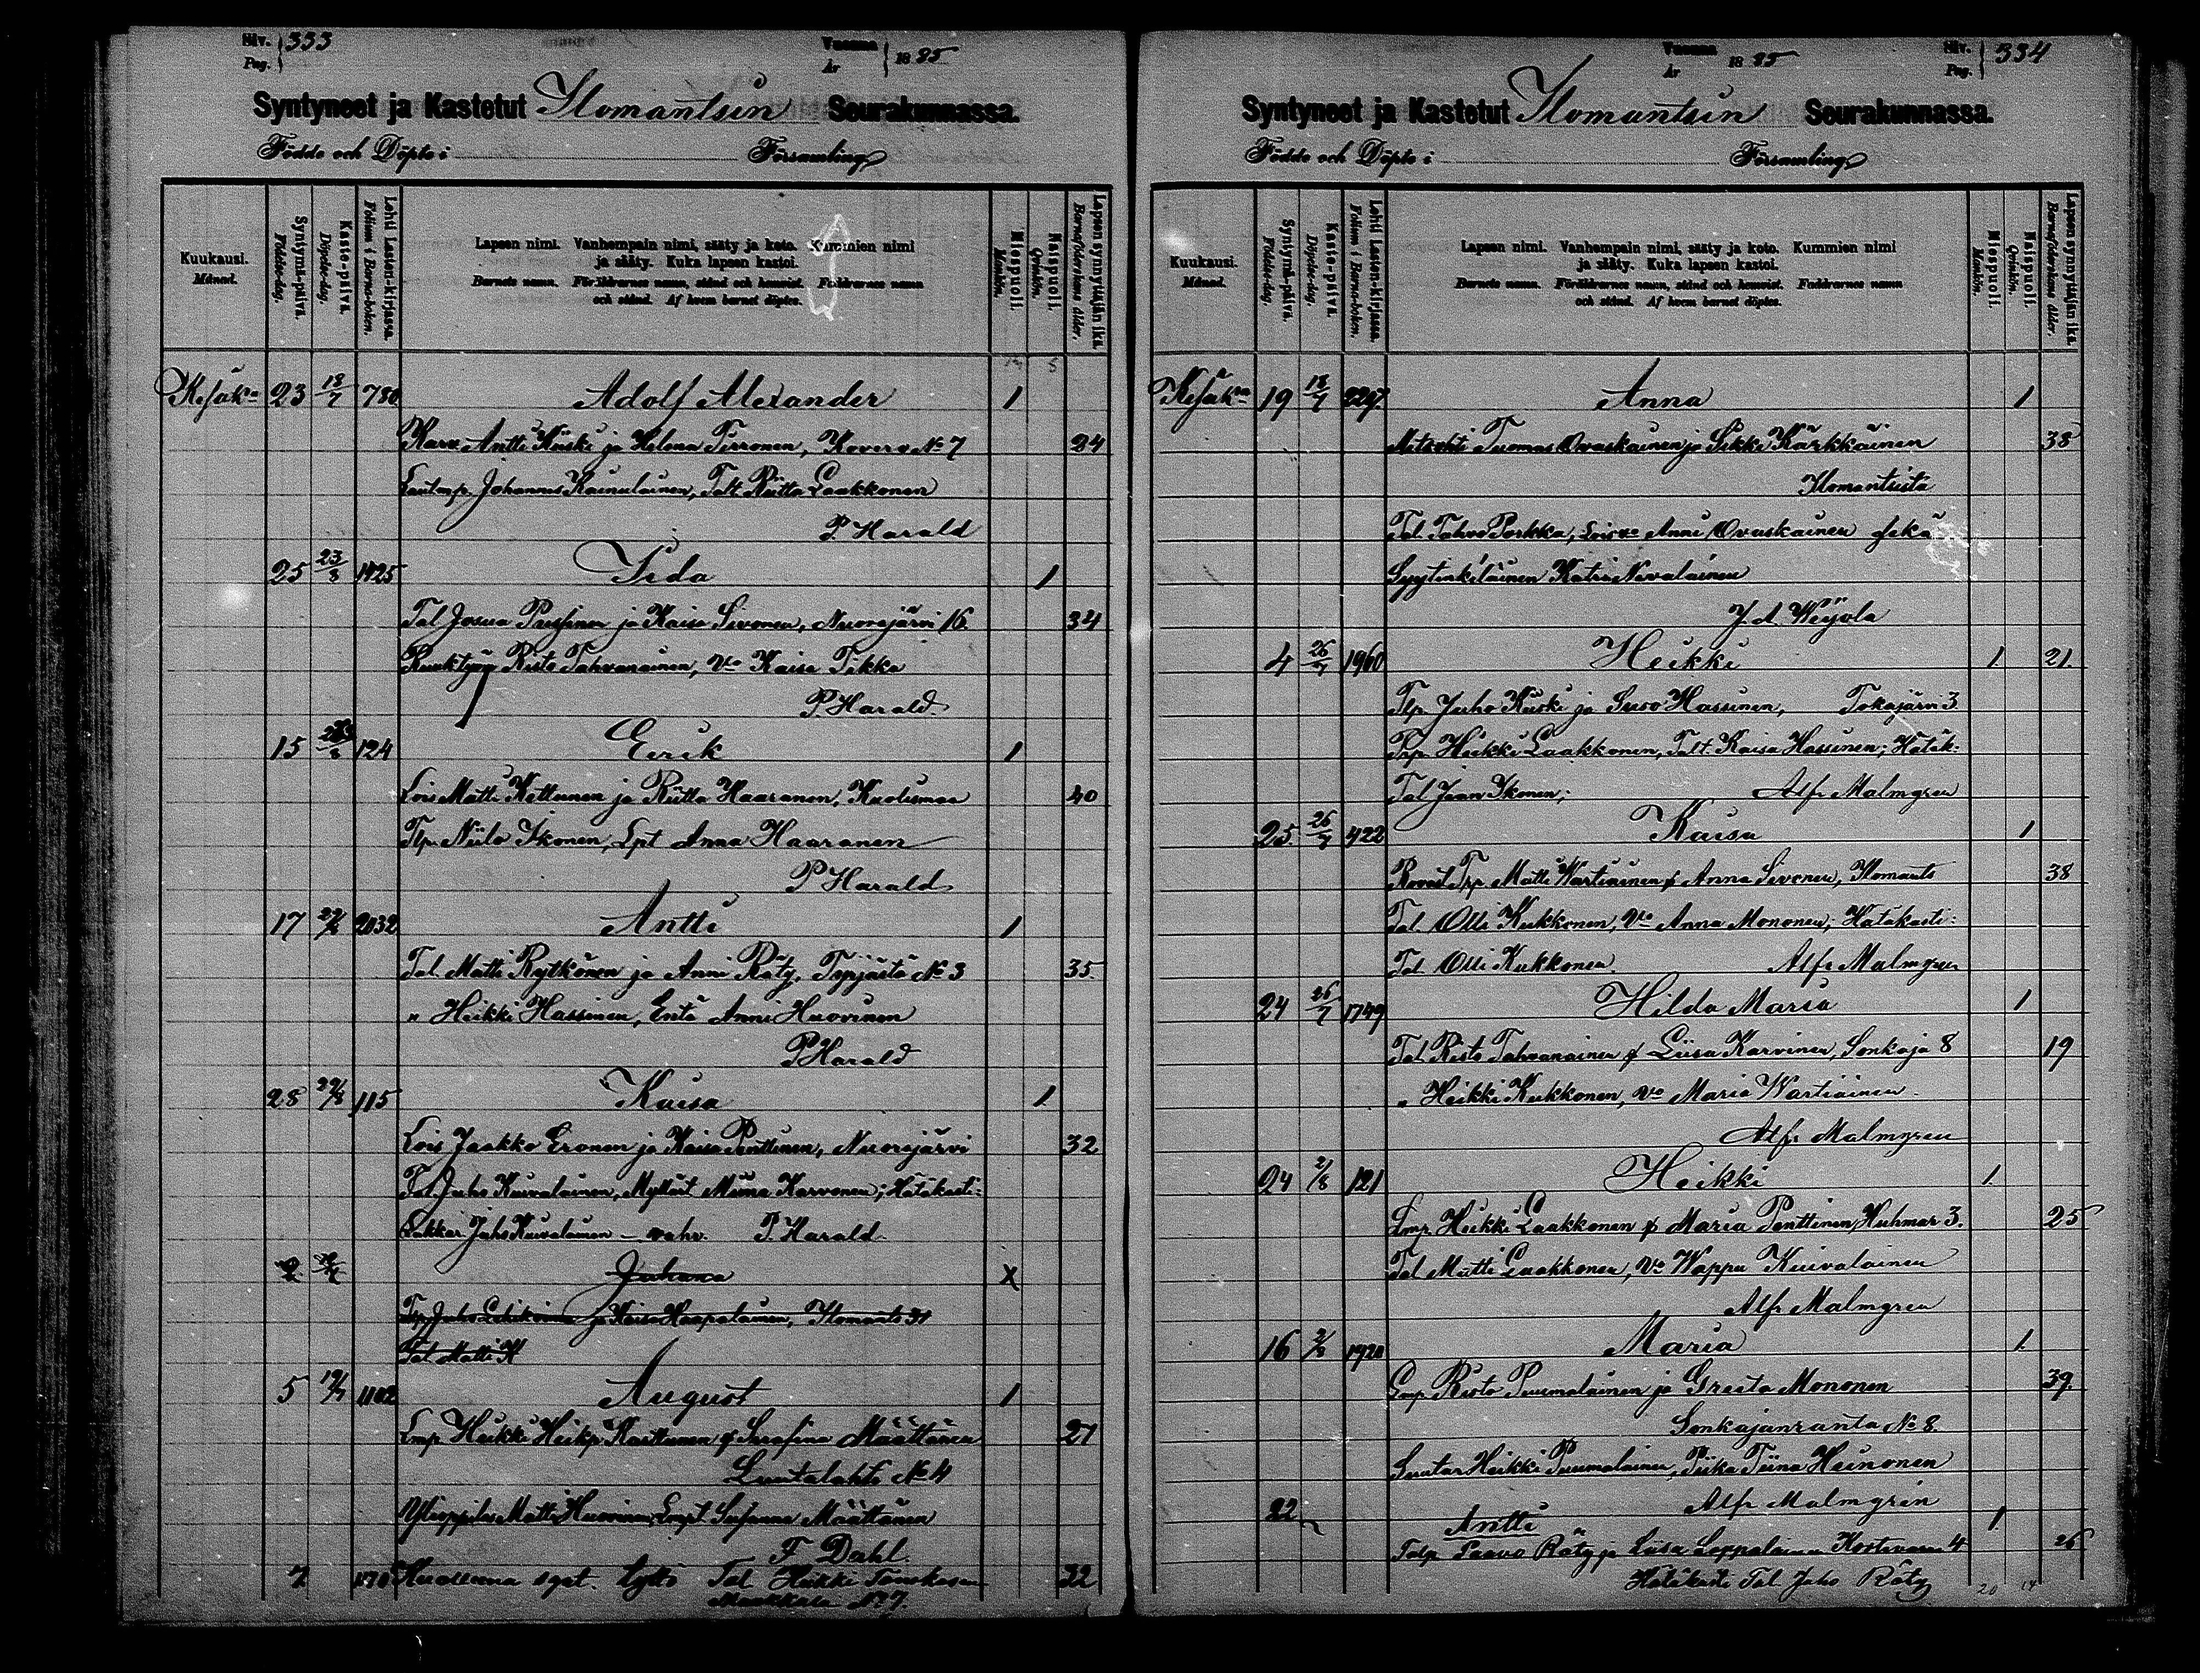 Siv. 333
Pag.
Vuonna 1885
År
Syntyneet ja Kastetut Ilomantsin Seurakunnassa.
Födde och Döpte i Församling
Kuukausi. Månad.
Syntymä-päivä. Födelse-dag.
Kaste-päivä. Döpelse-dag.
Lehti Lasten-kirjassa. Folium i Barna-boken.
Lapsen nimi. Vanhempain nimi, sääty ja koto. Kummien nimi
ja sääty. Kuka lapsen kastoi.
Barnets namn. Föräldrarnes namn, stånd och hemvist. Faddrarnes namn
och stånd. Af hvem barnet döptes.
Miespuoli. Mankön.
Naispuoli. Qvinkön.
Lapsen synnyttäjän ikä. Barnaföderskans ålder.
Kesäk. 23 18/7 780 Adolf Alexander 1
Antti Kuiski ja Helena Tirronen, Kovero No 7 24
Johannes Kainulainen, Riitta Laakkonen
P. Harald
25 23/8 1425 Iida 1
Tal Josua Pussinen ja Kaisa Sivonen, Nuorajärvi 16 34
Risto Tahvanainen, Vo Kaisa Tikka
P. Harald.
15 124 Eerik 1
Lois Matti Kettunen ja Riitta Haaranen, Kuolismaa 40
Tlp. Niilo Ikonen, Lpt Anna Haaranen
P Harald
17 2032 Antti 1
Tal Matti Rytkönen ja Anni Räty, No 3 35
" Heikki Hassinen, Anni Huovinen
P Harald
28 115 Kaisa 1
Lois Jaakko Eronen ja Kaisa Penttinen, Nuorajärvi 32
Tal Juho Kuivalainen, Miina Karvonen; Hätäkasti:
Juho Kuivalainen – vahv. P. Harald.
2 Juhana X
Juho ja Kaisa Haapalainen, Ilomants 31
Tal Matti K
5 19/7 1102 August 1
Lmp Heikki Heikp Karttunen & Serafina Määttänen 27
Luutalahti No 4
Ylioppilas Matti Huovinen, Lmpt Susanna Määttänen
F Dahl.
7 Kuolleena synt. tyttö Tal Heikki 32
No 7.
Vuonna 1885
År
Siv. 334
Pag.
Syntyneet ja Kastetut Ilomantsin Seurakunnassa.
Födde och Döpte i Församling
Kuukausi. Månad.
Syntymä-päivä. Födelse-dag.
Kaste-päivä. Döpelse-dag.
Lehti Lasten-kirjassa. Folium i Barna-boken.
Lapsen nimi. Vanhempain nimi, sääty ja koto. Kummien nimi
ja sääty. Kuka lapsen kastoi.
Barnets namn. Föräldrarnes namn, stånd och hemvist. Faddrarnes namn
och stånd. Af hvem barnet döptes.
Miespuoli. Mankön.
Naispuoli. Qvinkön.
Lapsen synnyttäjän ikä. Barnaföderskans ålder.
Kesäk. 19 18/7 Anna 1
Tuomas Ovaskainen ja Sikki Kärkkäinen 38
Ilomantsista
Tal Tahvo Porkka, Anni Ovaskainen sekä
Syytinkiläinen Katri Nevalainen
J. A. Weijola
4 26/7 1960 Heikki 1 21
Tlp. Juho Kuiski ja Suso Hassinen, Tokajärvi 3
Heikki Laakkonen, Talt. Kaisa Hassinen; Hätäk:
Tal Ikonen; Alfr Malmgren
25. 26/7 422 Kaisa 1
Matti Wartiainen & Anna Sivonen, Ilomants 38
Tal Olli Kukkonen, Vo Anna Mononen; Hätäkasti:
Tal Olli Kukkonen. Alfr Malmgren
24 26/7 1749 Hilda Maria 1
Tal Risto Tahvanainen & Liisa Karvinen, Sonkaja 8 19
" Heikki Kukkonen, Vo Maria Wartiainen.
Alfr Malmgren
24 2/8 121 Heikki 1.
Lmp. Heikki Laakkonen & Maria Penttinen, Huhmar 3. 25
Tal Matti Laakkonen, Vo Wappu Kuivalainen
Alfr Malmgren
16 2/8 1920 Maria 1.
Lmp Risto Puumalainen ja Greeta Mononen 39.
Sonkajanranta No 8.
Suutar Heikki Puumalainen, Piika Tiina Heinonen
Alfr Malmgren
22 Antti 1
Talp Paavo Räty ja Liisa Leppälainen Kostavaara 4 26
Hätäkasti Tal Juho Räty 20 14